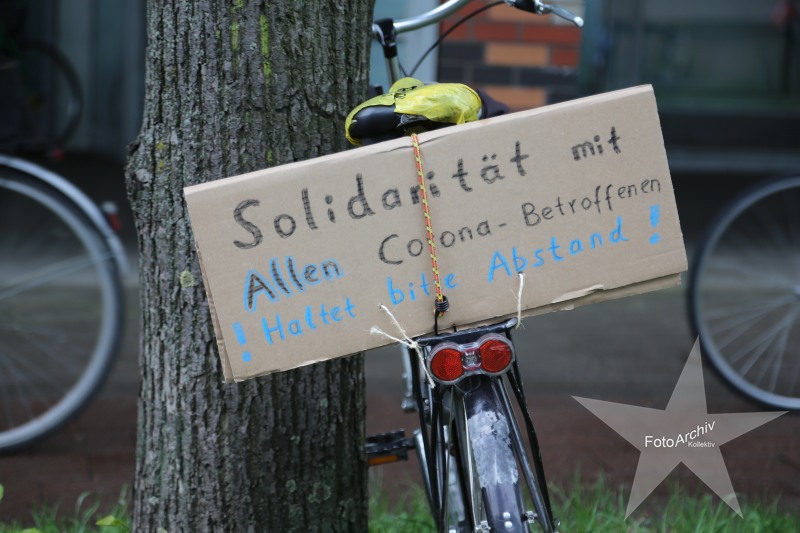 Solidarität mit
Allen Corona-Betroffenen
! Haltet bitte Abstand !
FotoArchiv
Kollektiv